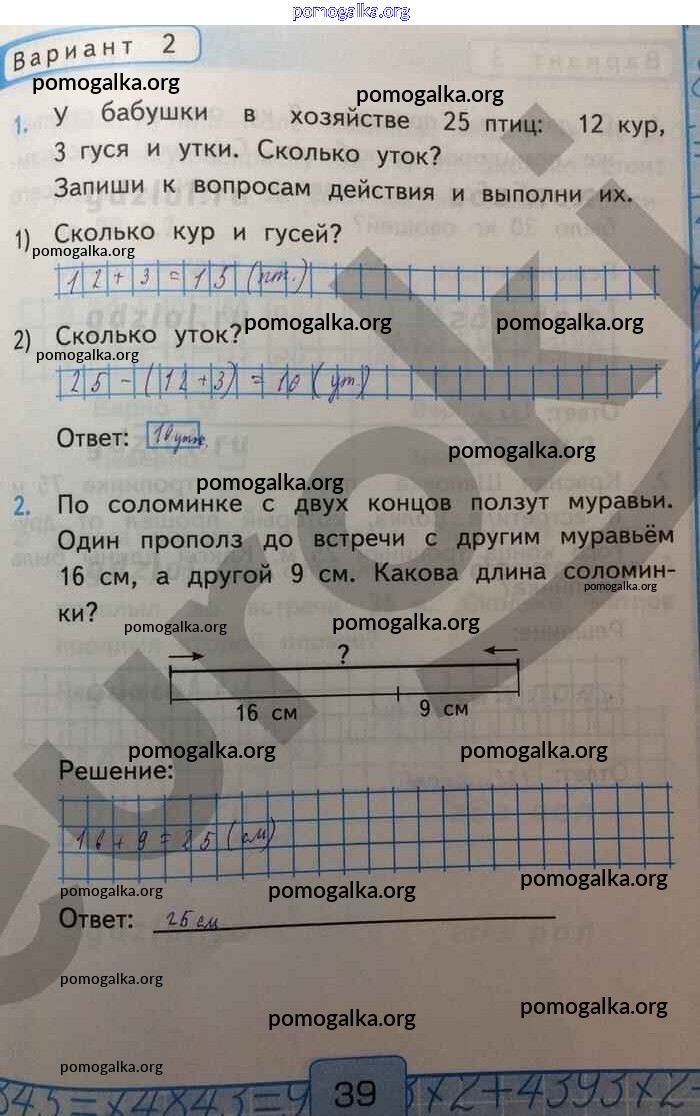 pomogalka.org
Вариант 2
pomogalka.org
pomogalka.org
1. У бабушки в хозяйстве 25 птиц: 12 кур,
3 гуся и утки. Сколько уток?
Запиши к вопросам действия и выполни их.
1) Сколько кур и гусей?
pomogalka.org
12+3=15 (пт.)
2) Сколько уток?
pomogalka.org
pomogalka.org
pomogalka.org
25-(12+3)=10 (ут.)
Ответ:
pomogalka.org
pomogalka.org
2. По соломинке с двух концов ползут муравьи.
Один прополз до встречи с другим муравьём
16 см, а другой 9 см. Какова длина соломин-
ки?
pomogalka.org
pomogalka.org
pomogalka.org
?
16 см 9 см
pomogalka.org
pomogalka.org
Решение:
16+9=25 (см)
pomogalka.org
pomogalka.org
pomogalka.org
Ответ: 25 см
pomogalka.org
pomogalka.org
pomogalka.org
pomogalka.org
39